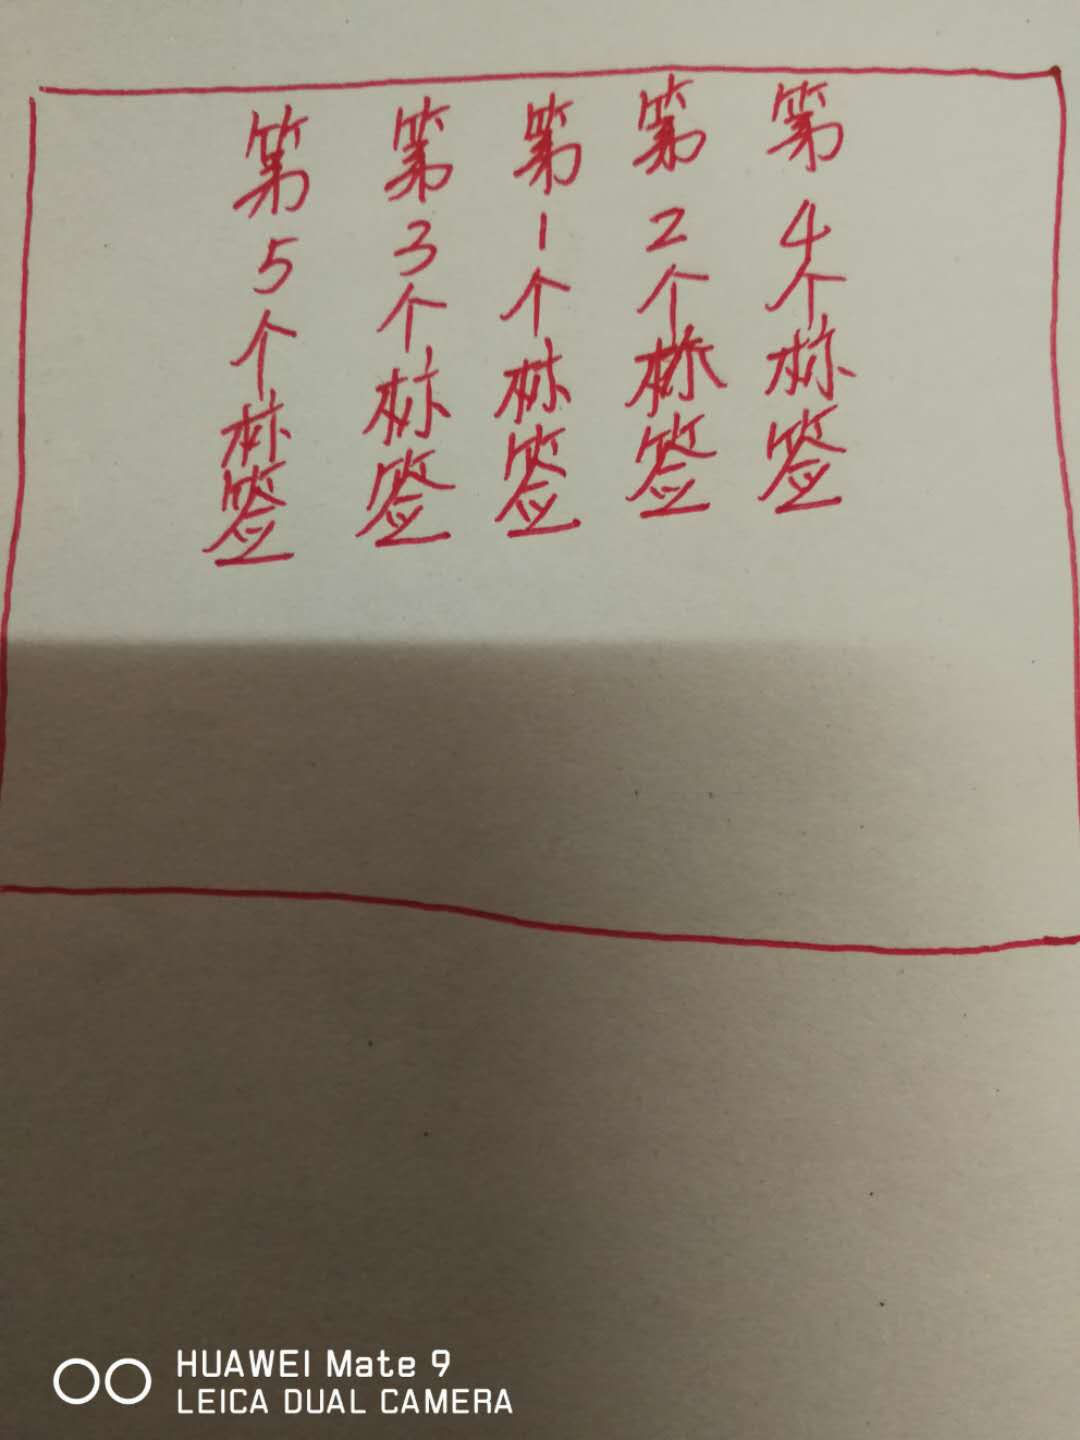 第5个标签
第3个标签
第1个标签
第2个标签
第4个标签
HUAWEI Mate 9
LEICA DUAL CAMERA